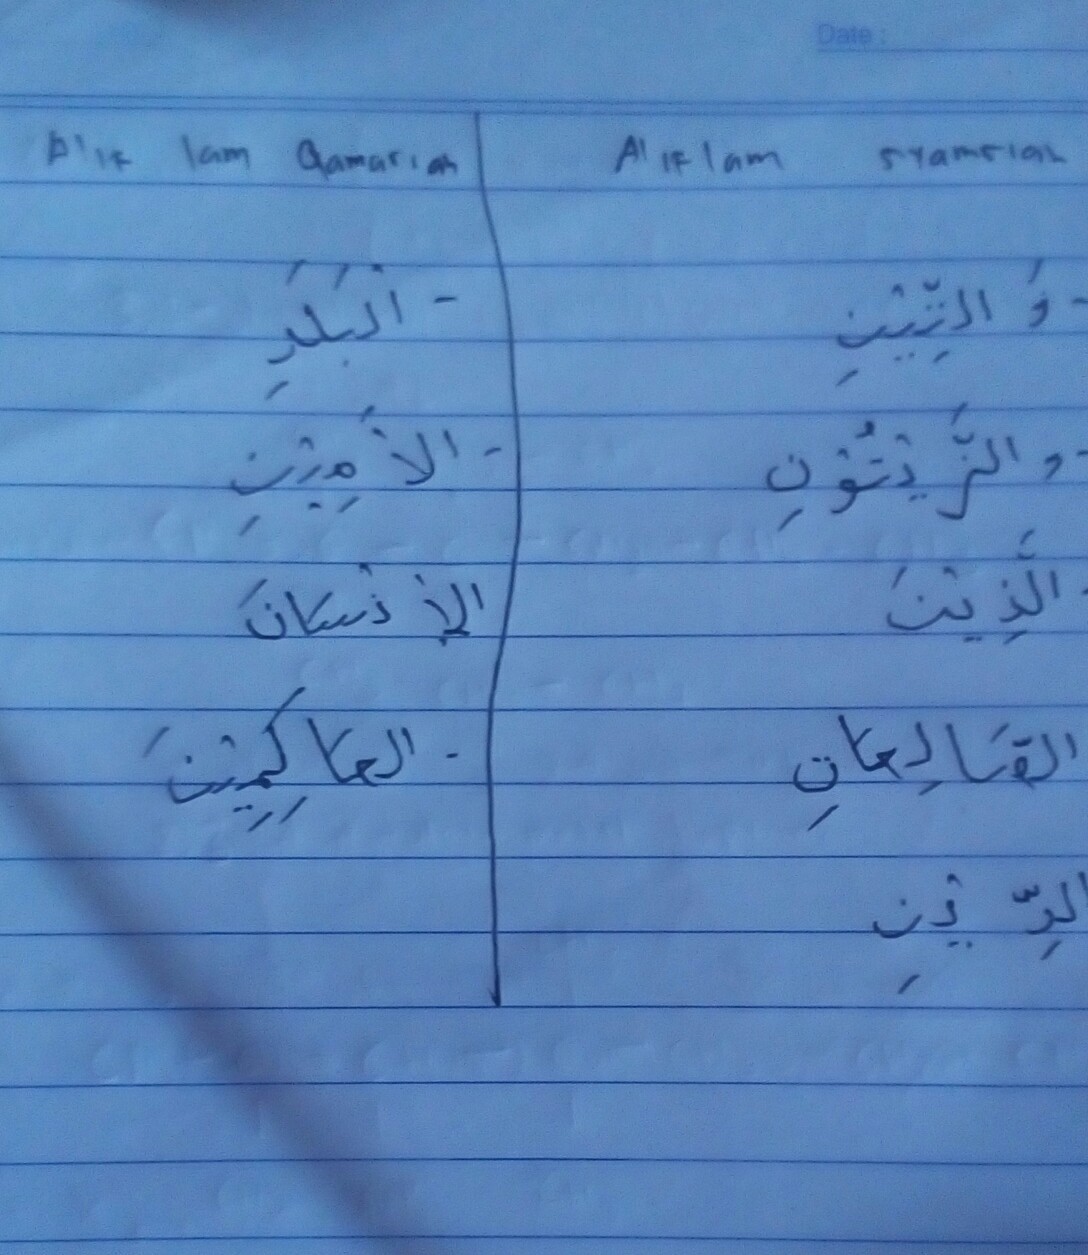 Date :
Alif lam Qamariah
Alif lam syamsiah
- اَلْبَلَدِ
- وَ التِّيْنِ
- الأَمِيْنِ
- و الزَّيْتُوْنِ
الإِنْسَانَ
- الَّذِيْنَ
- الحَاكِمِيْنَ
الصَّالِحَاتِ
الدِّيْنِ